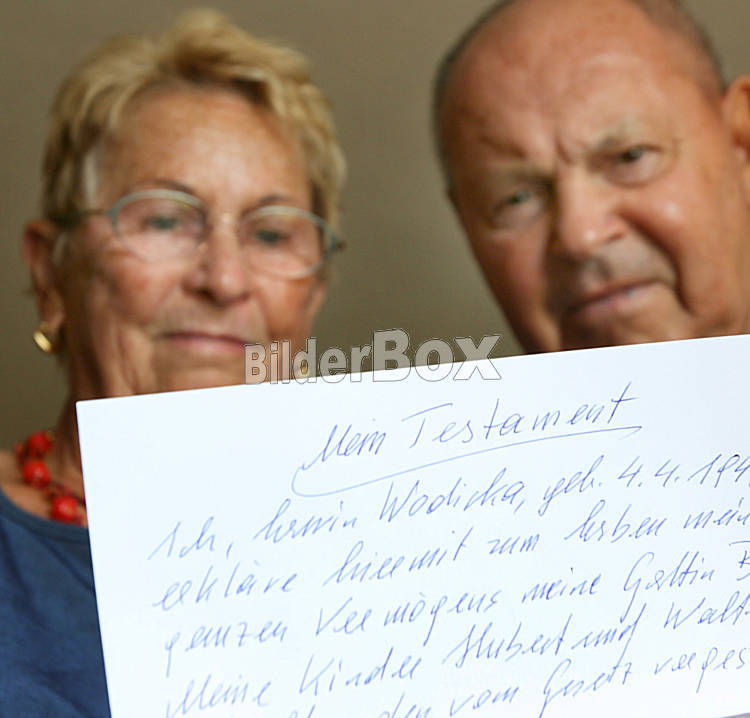 BilderBOX
Mein Testament
Ich, Erwin Wodicka, geb. 4.4.194
erkläre hiermit zum Erben mein
ganzen Vermögens meine Gattin
Meine Kinder Hubert und Walt
den vom Gesetz vorges